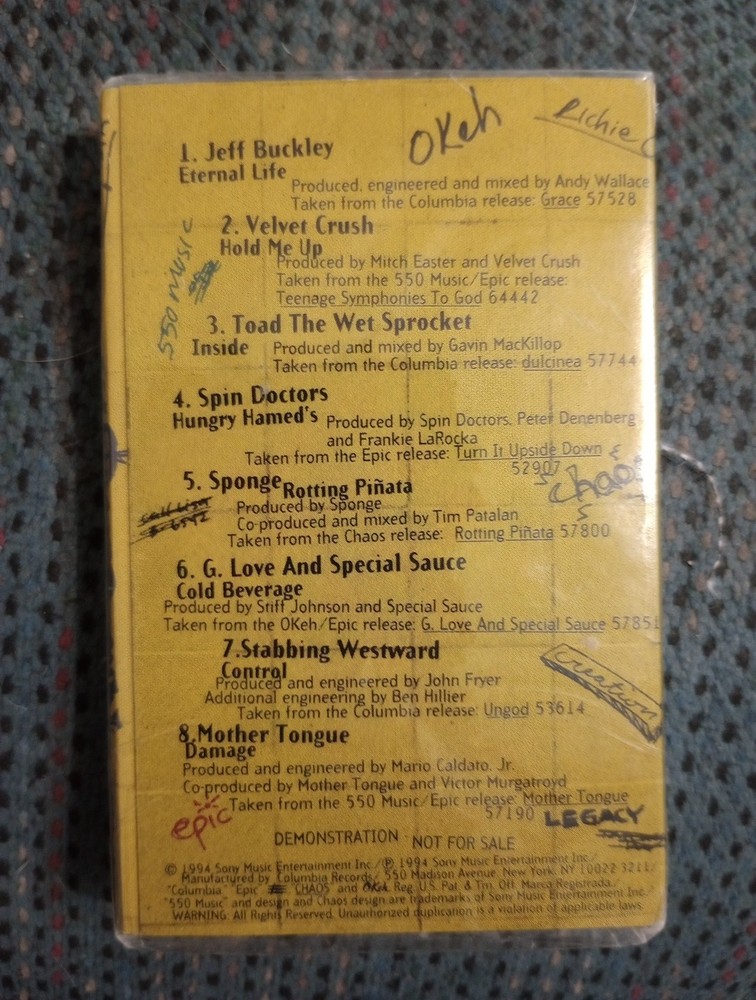 OKeh
Richie
1. Jeff Buckley
Eternal Life
Produced, engineered and mixed by Andy Wallace
Taken from the Columbia release: Grace 57528
550 MUSIC
2. Velvet Crush
Hold Me Up
Produced by Mitch Easter and Velvet Crush
Taken from the 550 Music/Epic release:
Teenage Symphonies To God 64442
3. Toad The Wet Sprocket
Inside
Produced and mixed by Gavin MacKillop
Taken from the Columbia release: dulcinea 57744
4. Spin Doctors
Hungry Hamed's
Produced by Spin Doctors, Peter Denenberg
and Frankie LaRocka
Taken from the Epic release: Turn It Upside Down
52907
chaos
5. Sponge
Rotting Piñata
Produced by Sponge
Co-produced and mixed by Tim Patalan
Taken from the Chaos release: Rotting Piñata 57800
6. G. Love And Special Sauce
Cold Beverage
Produced by Stiff Johnson and Special Sauce
Taken from the OKeh/Epic release: G. Love And Special Sauce 57851
7.Stabbing Westward
Control
Produced and engineered by John Fryer
Additional engineering by Ben Hillier
Taken from the Columbia release: Ungod 53614
creation
8.Mother Tongue
Damage
Produced and engineered by Mario Caldato, Jr.
Co-produced by Mother Tongue and Victor Murgatroyd
Taken from the 550 Music/Epic release: Mother Tongue
57190
epic
LEGACY
DEMONSTRATION - NOT FOR SALE
© 1994 Sony Music Entertainment Inc./℗ 1994 Sony Music Entertainment Inc./
Manufactured by Columbia Records/ 550 Madison Avenue, New York, NY 10022-3211/
"Columbia," "Epic" CHAOS and OKeh Reg. U.S. Pat. & Tm. Off. Marca Registrada./
"550 Music" and design and Chaos design are trademarks of Sony Music Entertainment Inc./
WARNING: All Rights Reserved. Unauthorized duplication is a violation of applicable laws.